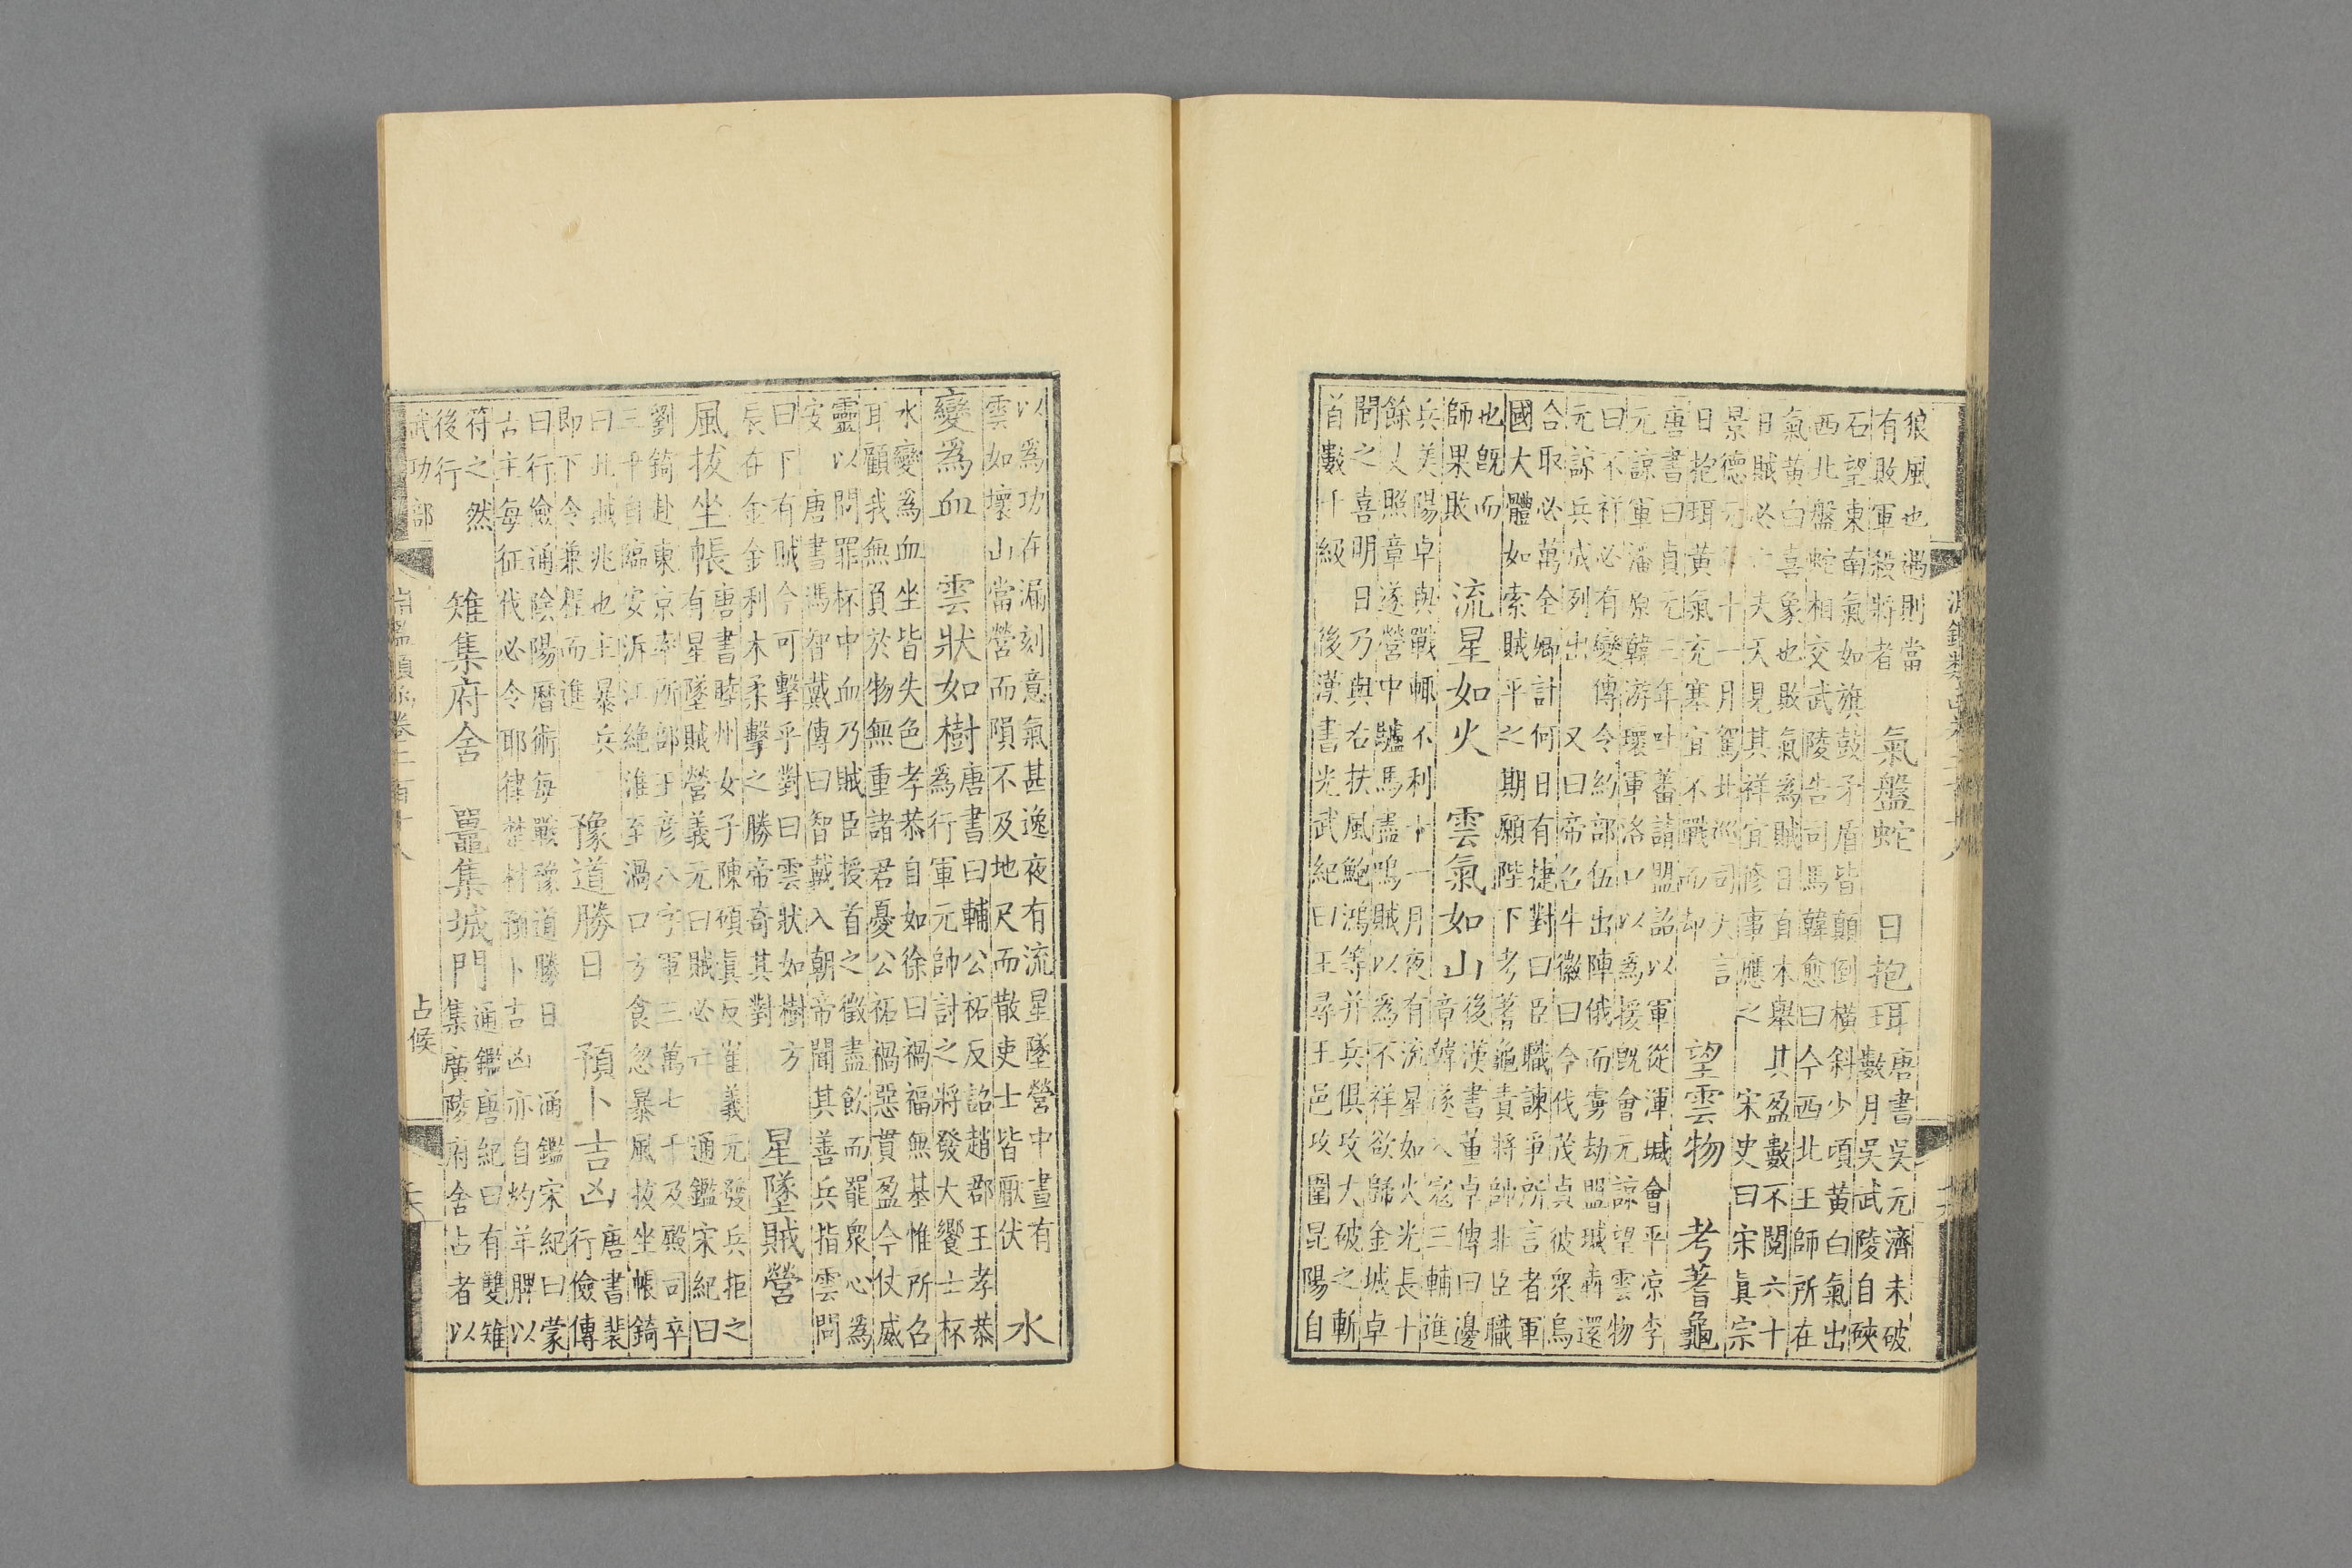 狼風也遇則當
有敗軍殺將者
氣盤蛇
日抱珥
唐書吳元濟未破
數月吳武陵自硤
石望東南氣如旗鼓矛盾皆顛倒橫斜少頃黃白氣出
西北盤蛇相交武陵告司馬韓愈曰今西北王師所在
氣黃白喜象也敗氣爲賊日自本舉其盈數不閱六十
日賊必亡夫天見其祥宜修事應之
宋史曰宋眞宗
景德元年十一月駕北巡司天言
日抱珥黃氣充塞宜不戰而却
望雲物
考蓍龜
唐書曰貞元三年吐蕃請盟詔以軍從渾瑊會平凉李
元諒軍潘原韓游瓌軍洛口以爲援旣會元諒望雲物
曰不祥必有變傳令約部伍出陣俄而虜劫盟瑊奔還
元諒兵成列出
又曰帝召牛徽曰今伐茂貞彼衆烏
合取必萬全卿計何日有捷對曰臣職諫爭所言者軍
國大體如索賊平之期願陛下考蓍龜責將帥非臣職
也旣而
師果敗
流星如火
雲氣如山
後漢書董卓傳曰邊
章韓遂入寇三輔進
兵美陽卓與戰輒不利十一月夜有流星如火光長十
餘丈照章遂營中驢馬盡鳴賊以爲不祥欲歸金城卓
聞之喜明日乃與右扶風鮑鴻等并兵俱攻大破之斬
首數千級
後漢書光武紀曰王尋王邑攻圍昆陽自
以爲功在漏刻意氣甚逸夜有流星墜營中晝有
雲如壞山當營而隕不及地尺而散吏士皆厭伏
水
變爲血
雲狀如樹
唐書曰輔公祏反詔趙郡王孝恭
爲行軍元帥討之將發大饗士杯
水變爲血坐皆失色孝恭自如徐曰禍福無基惟所召
耳顧我無負於物無重諸君憂公祏禍惡貫盈今仗威
靈以問罪杯中血乃賊臣授首之徵盡飲而罷衆心爲
安
唐書馮智戴傳曰智戴入朝帝聞其善兵指雲問
曰下有賊今可擊乎對曰雲狀如樹方
辰在金金利木柔擊之勝帝奇其對
星墜賊營
風拔坐帳
唐書睦州女子陳碩眞反崔義元發兵拒之
有星墜賊營義元曰賊必亡
通鑑宋紀曰
劉錡赴東京率所部王彥八字軍三萬七千及殿司卒
三千自臨安泝江絶淮至渦口方食忽暴風拔坐帳錡
曰此賊兆也主暴兵
即下令兼程而進
豫道勝日
預卜吉凶
唐書裴
行儉傳
曰行儉通陰陽曆術每戰豫道勝日
通鑑宋紀曰蒙
古主每征伐必令耶律楚材預卜吉凶亦自灼羊髀以
符之然
後行
雉集府舍
鼉集城門
通鑑唐紀曰有雙雉
集廣陵府舍占者以
武功部
淵鑑類函卷二百十八
占候